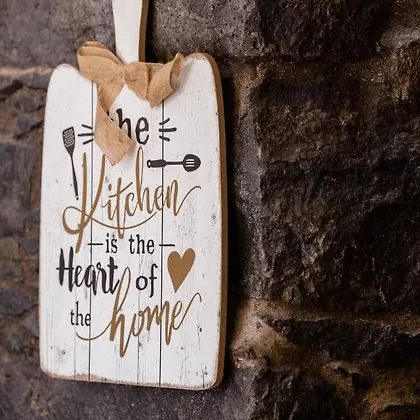 the
Kitchen
is the
Heart of
the home